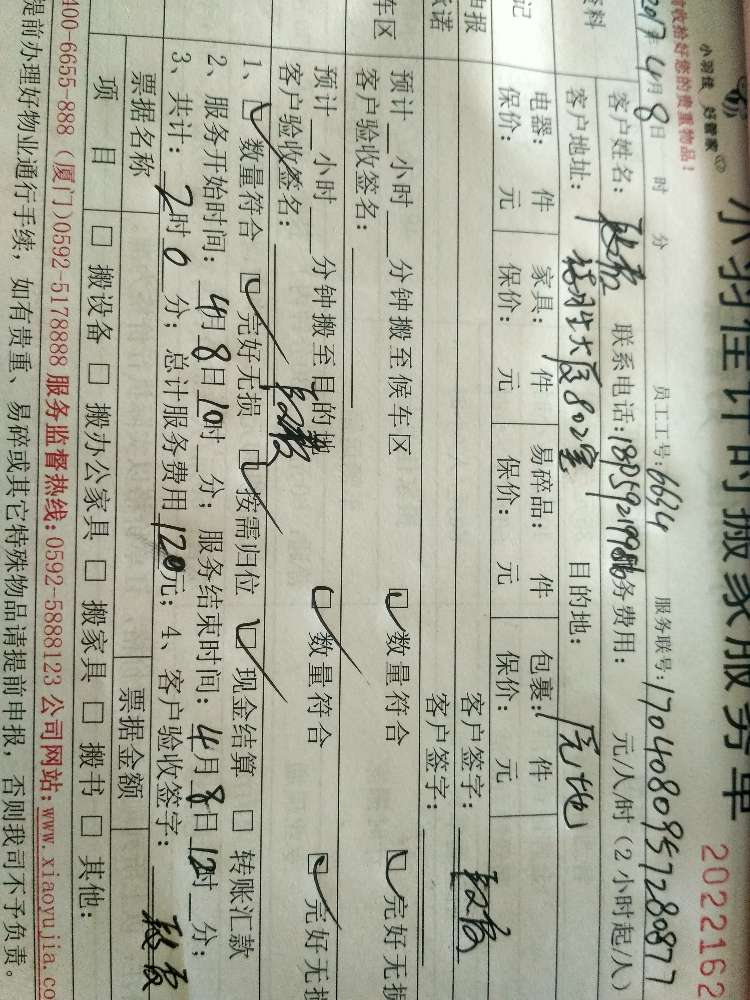 小羽佳 好管家
小羽佳计时搬家服务单
2022162
前收拾好您的贵重物品!
2017年4月8日 时 分 员工工号:6634 服务联号:170408095728087
资料
客户姓名: 联系电话:18059219986 务费用: 元/人/时(2小时起/人)
客户地址: 大厦802室 目的地: 原地
记
电器: 件 家具: 件 易碎品: 件 包裹: 件
保价: 元 保价: 元 保价: 元 保价: 元
申报
客户签字:
承诺
客户签字:
车区
预计__小时__分钟搬至候车区 □数量符合 □完好无损
客户验收签名:
预计__小时__分钟搬至目的地 □数量符合 □完好无损
客户验收签名:
1、□数量符合 □完好无损 □按需归位 □现金结算 □转账汇款
2、服务开始时间:4月8日10时__分;服务结束时间:4月8日12时__分;
3、共计:2时0分;总计服务费用120元;4、客户验收签字:
票据名称 票据金额
项 目 □搬设备 □搬办公家具 □搬家具 □搬书 □其他:
400-6655-888 (厦门)0592-5178888 服务监督热线:0592-5888123 公司网站:www.xiaoyujia.co
提前办理好物业通行手续,如有贵重、易碎或其它特殊物品请提前申报,否则我司不予负责。